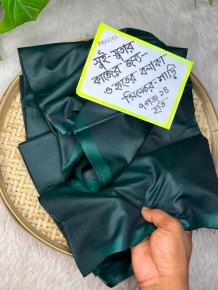 সুই-সুতার
কাজের জন্য-
ও হাতের বলাকা
সিলভার-শাড়ি
৭ গজ ১৪
হাত